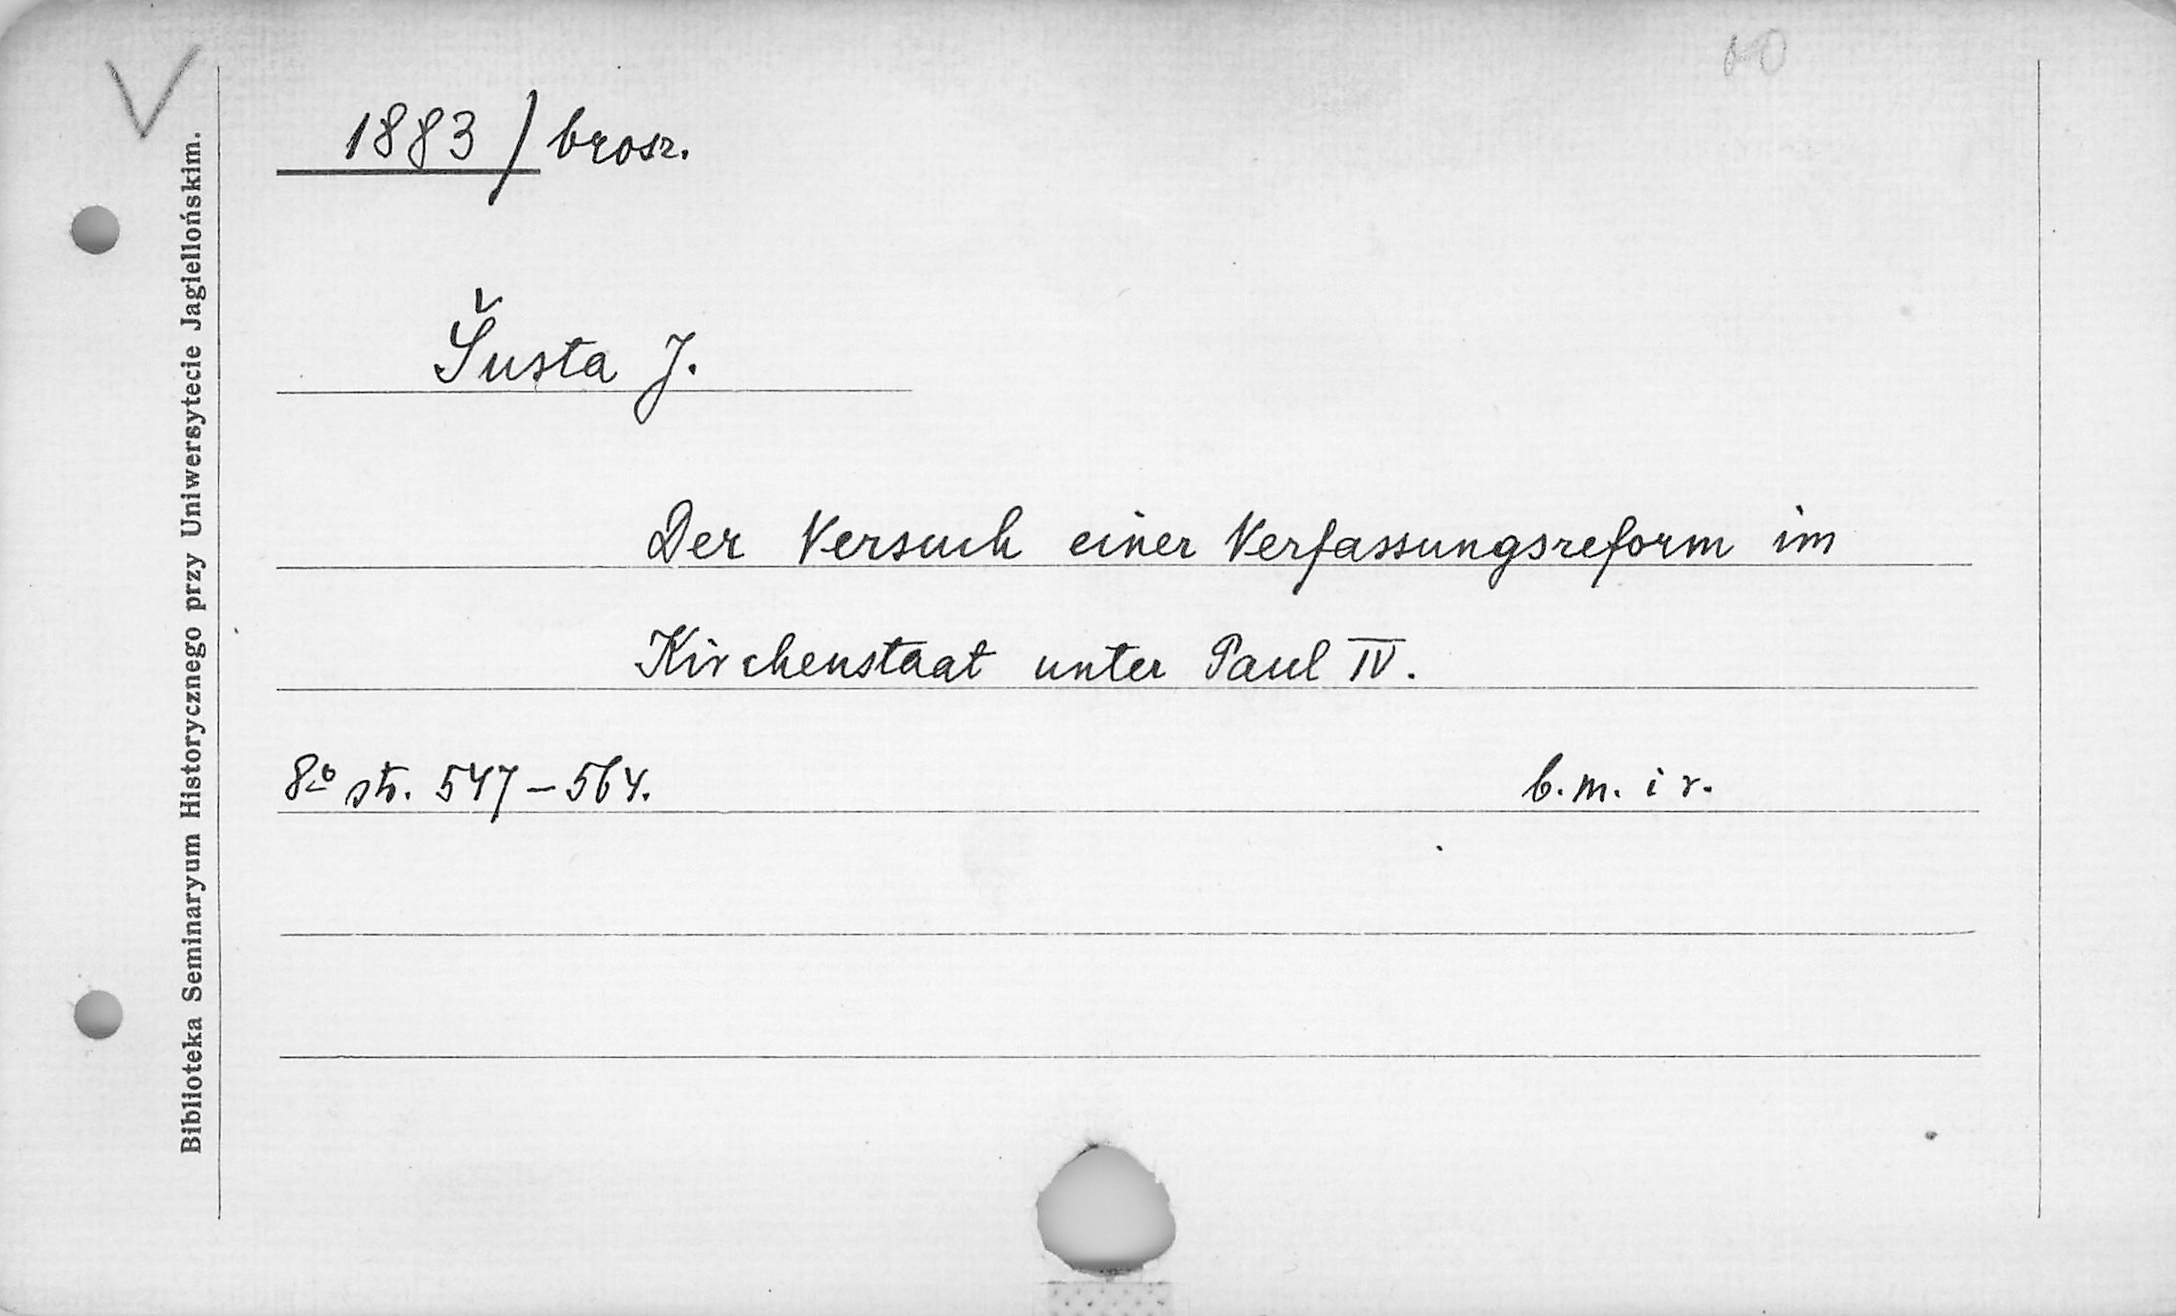 1883/brosz.
Šusta J.
Der Versuch einer Verfassungsreform im
Kirchenstaat unter Paul IV.
8º str. 547-564.
b.m. i r.
Biblioteka Seminaryum Historycznego przy Uniwersytecie Jagiellońskim.